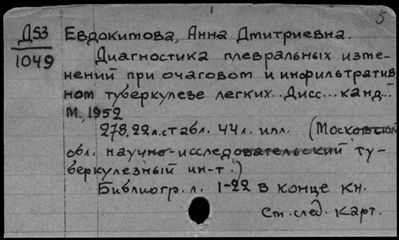 5
Д53 Евдокитова, Анна Дмитриевна.
1049 Диагностика плевральных изме-
нений при очаговом и инфильтратив
ном туберкулезе легких.. Дисс... канд...
М., 1952
278, 22 л. стабл. 44 л. илл. (Московский
обл. научно-исследовательский ту-
беркулезный ин-т.)
Библиогр. л. 1-22 в конце кн.
См. след. карт.